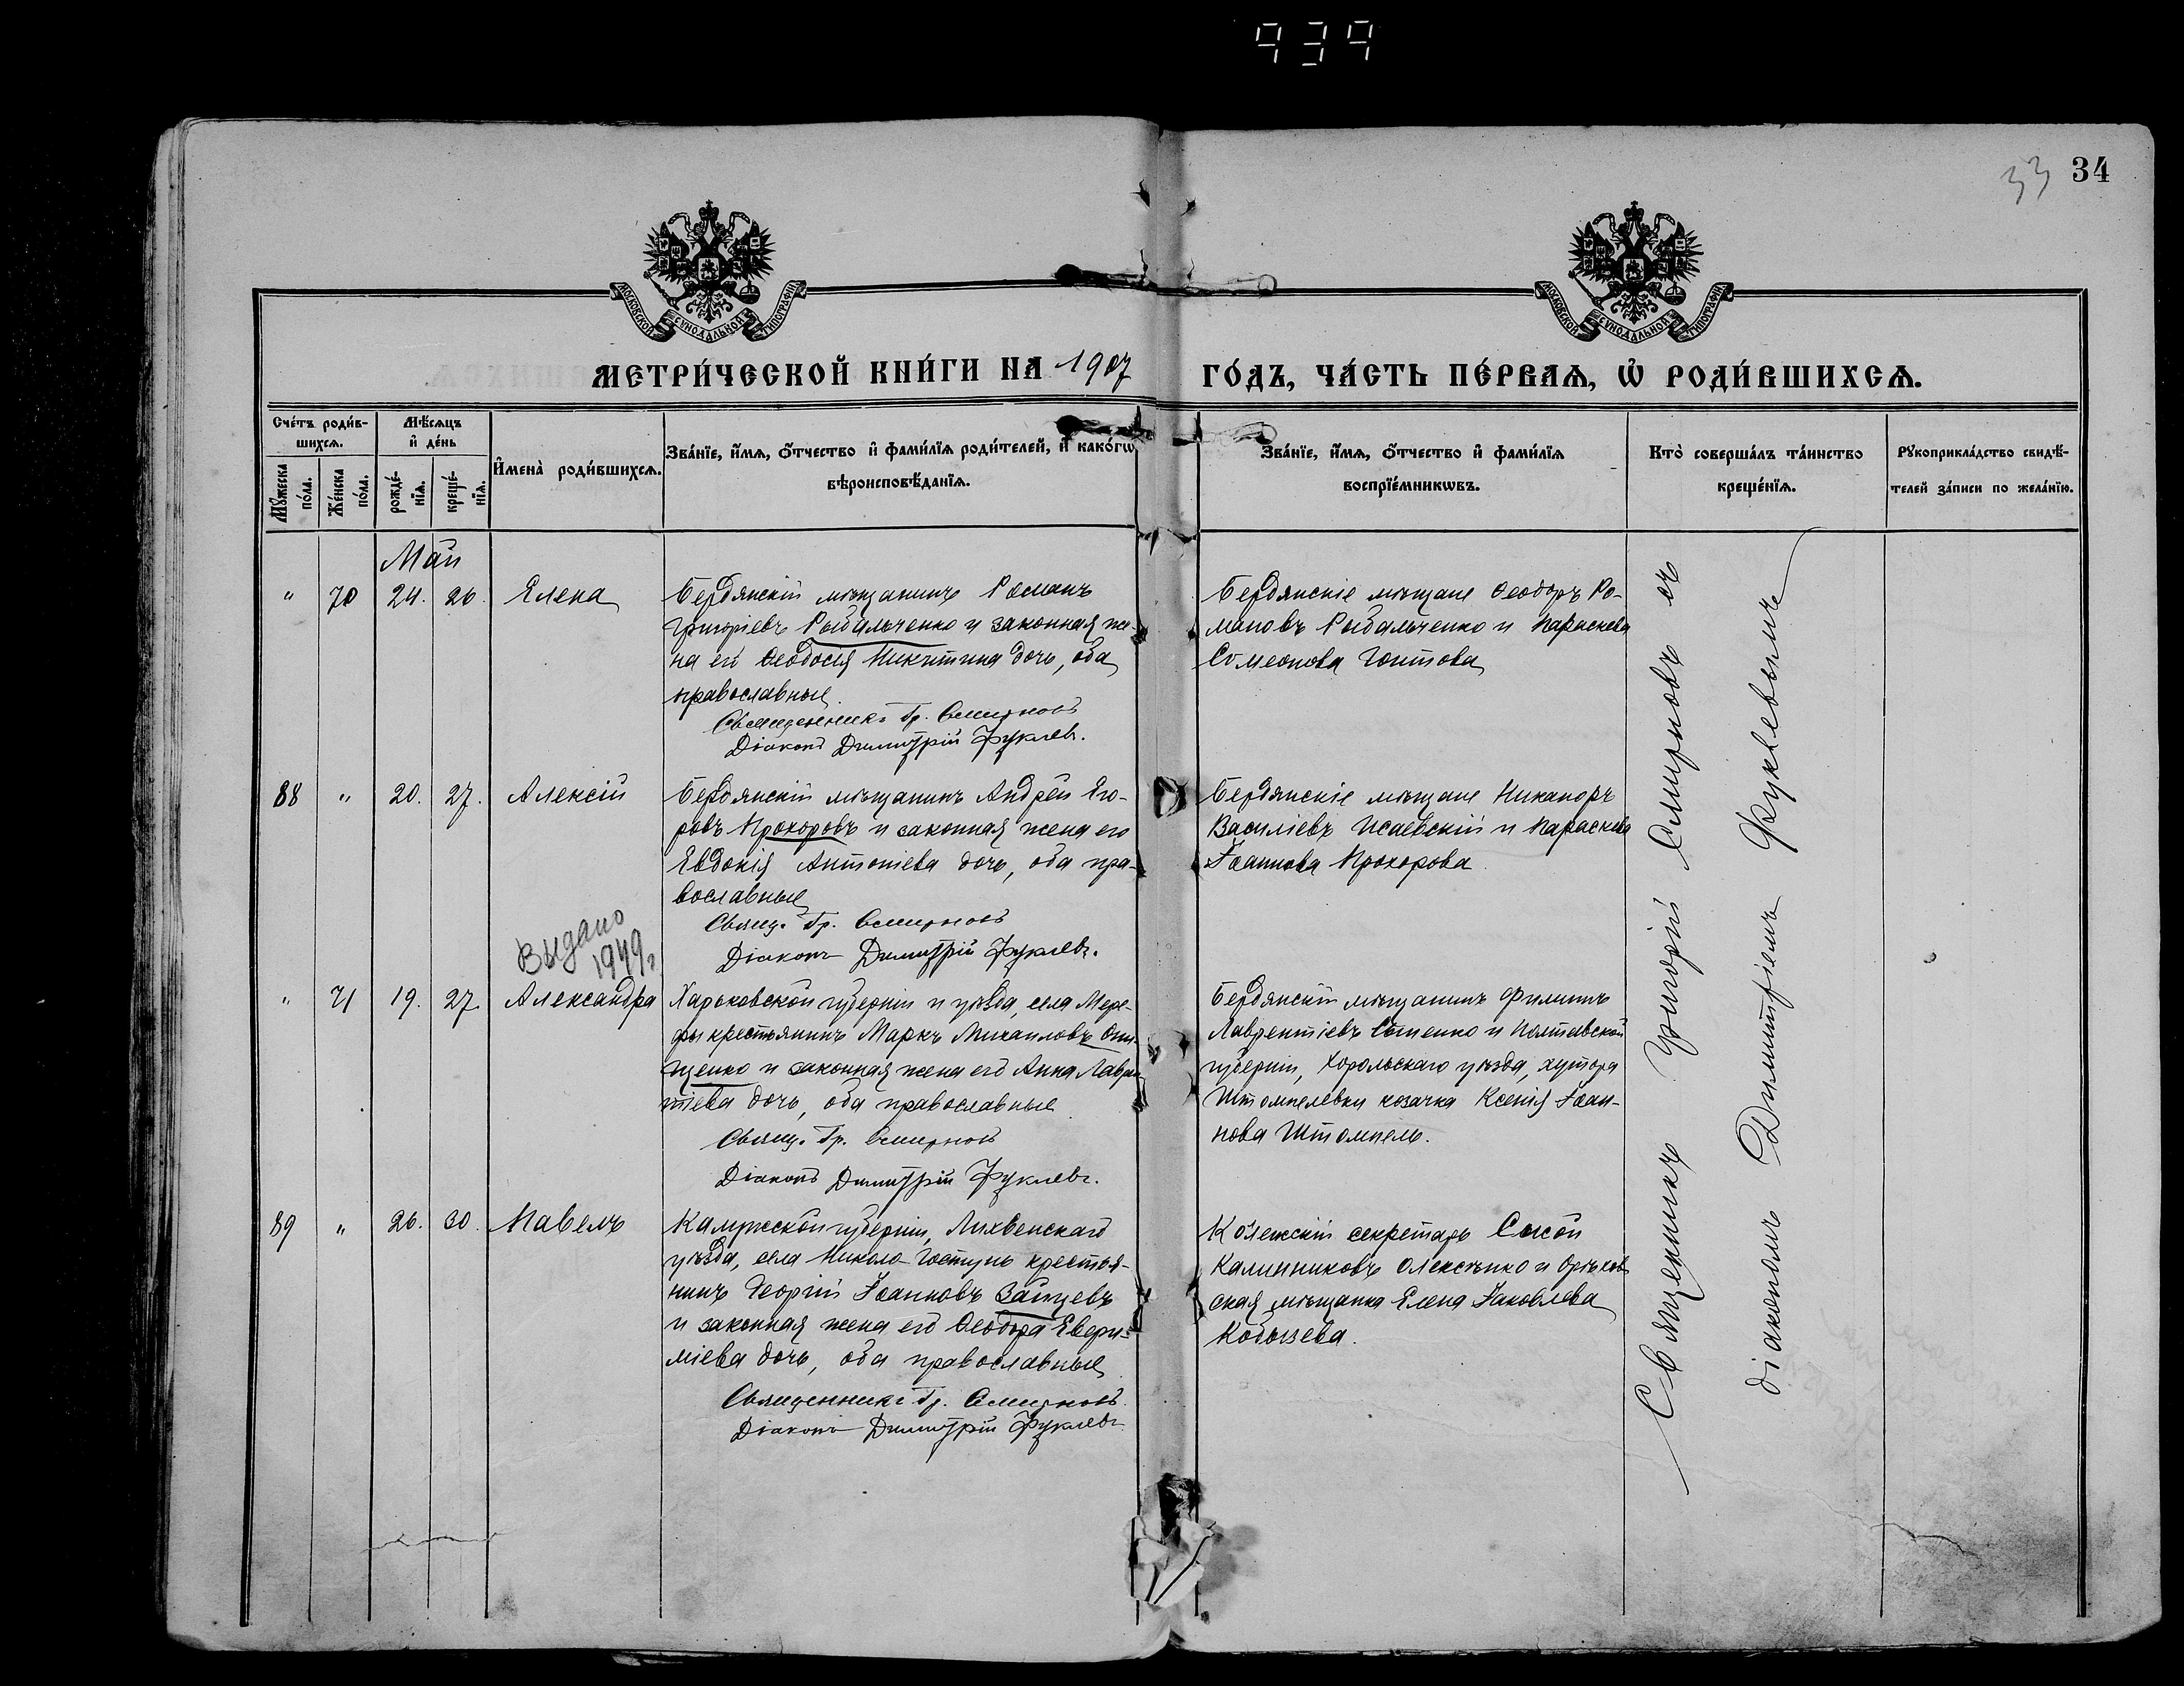 939
33 34
МОСКОВСКОЙ СѴНОДАЛЬНОЙ ТИПОГРАФІИ
МОСКОВСКОЙ СѴНОДАЛЬНОЙ ТИПОГРАФІИ
МЕТРИ́ЧЕСКОЙ КНИ́ГИ НА 1907 ГО́ДЪ, ЧА́СТЬ ПЕ́РВАѦ, Ѡ҆ РОДИ́ВШИХСѦ.
Сче́тъ роди́в-
шихсѧ.
Мꙋ́жеска
по́ла.
Же́нска
по́ла.
Мѣ́сѧцъ
и҆ де́нь
рожде́-
нїѧ.
креще́-
нїѧ.
И҆мена̀ роди́вшихсѧ.
Зва́нїе, и҆́мѧ, ѻ҆́тчество и҆ фами́лїѧ роди́телей, и҆ како́гѡ
вѣроисповѣ́данїѧ.
Зва́нїе, и҆́мѧ, ѻ҆́тчество и҆ фами́лїѧ
воспрїе́мникѡвъ.
Кто̀ соверша́лъ та́инство
креще́нїѧ.
Рꙋкоприкла́дство свидѣ́-
телей за́писи по жела́нїю.
Май
" 70 24. 26. Елена
Бердянскій мѣщанинъ Романъ
Григоріевъ Рыбальченко и законная же-
на его Ѳеодосія Никитина дочь, оба
православные.
Священникъ Гр. Смирновъ
Діаконъ Димитрій Фуклевъ.
Бердянскіе мѣщане Ѳеодоръ Ро-
мановъ Рыбальченко и Параскева
Симеонова Гоитова
88 " 20. 27. Алексій
Бердянскій мѣщанинъ Андрей Его-
ровъ Прохоровъ и законная жена его
Евдокія Антоніева дочь, оба пра-
вославные
Свящ. Гр. Смирновъ
Діаконъ Димитрій Фуклевъ.
Бердянскіе мѣщане Никаноръ
Василіевъ Исаевскій и Параскева
Іоаннова Прохорова
Выдано
1949г
" 71 19. 27. Александра
Харьковской губерніи и уѣзда, села Мере-
фы крестьянинъ Маркъ Михаиловъ Они-
щенко и законная жена его Анна Лаврен
тіева дочь, оба православные
Свящ. Гр. Смирновъ
Діаконъ Димитрій Фуклевъ.
Бердянскій мѣщанинъ Филиппъ
Лаврентіевъ и Полтавской
губерніи, Хорольскаго уѣзда, хутора
Штомпелевки козачка Ксенія Іоан-
нова Штомпель.
89 " 26. 30. Павелъ
Калужской губерніи, Лихвенскаго
уѣзда, села Николо-Гостунь крестья-
нинъ Георгій Іоанновъ Зайцевъ
и законная жена его Ѳеодора Евѳи-
міева дочь, оба православные
Священникъ Гр. Смирновъ.
Діаконъ Димитрій Фуклевъ
Колежскій секретарь Сысой
Калинниковъ Олексѣнко и Орѣхов
ская мѣщанка Елена Іаковлева
Кобызева.
Священникъ Григорій Смирновъ съ
діакономъ Димитріемъ Фуклевымъ